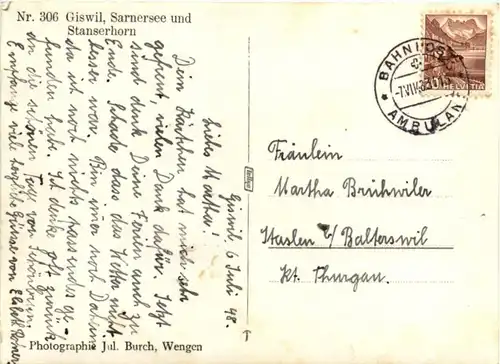 Nr. 306 Giswil, Sarnersee und
Stanserhorn
Giswil 6 Juli 48.
Liebe Martha!
Dein Kärtchen hat mich sehr
gefreut, vielen Dank dafür. Jetzt
sind denk Deine Ferien auch zu
Ende. Schade dass das Wetter nicht
besser war. Bin immer noch Daheim
da ich noch nichts passendes ge-
funden habe. Ich denke oft zurück
an die schönen Tage von
Empfange viele herzliche Grüsse von
Photographie Jul. Burch, Wengen
BAHNPOST
AMBULANT
HELVETIA
Fräulein
Martha Brühwiler
Itaslen b/ Balterswil
Kt. Thurgau.